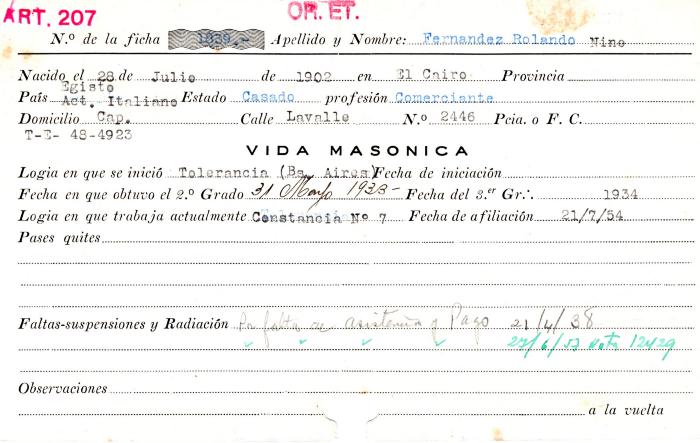 ART. 207
OR. ET.
N.º de la ficha 1839,- Apellido y Nombre: Fernandez Rolando Nino
Nacido el 28 de Julio de 1902 en El Cairo Provincia
País Egisto Act. Italiano Estado Casado profesión Comerciante
Domicilio Cap. Calle Lavalle N.º 2446 Pcia. o F. C.
T-E- 48-4923
VIDA MASONICA
Logia en que se inició Tolerancia (Bs. Aires) Fecha de iniciación
Fecha en que obtuvo el 2.º Grado 31 Mayo 1933- Fecha del 3.er Gr.·. 1934
Logia en que trabaja actualmente Constancia Nº 7 Fecha de afiliación 21/7/54
Pases quites
Faltas-suspensiones y Radiación Por falta de asistencia y Pago 21/4/38
27/6/53 Nota 12429
Observaciones
a la vuelta